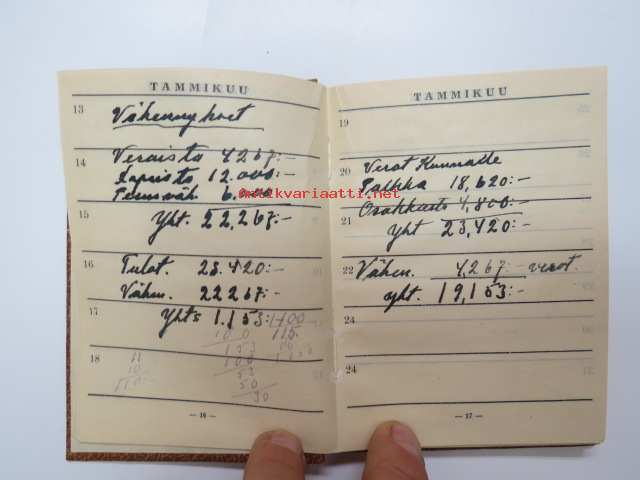 TAMMIKUU
13
Vähennykset
14
Veroista 4267:-
Lapsista 12.000:-
6.000
15
Yht. 22,267:-
16
Tulot. 23.420:-
Vähen. 22267:-
17
Yhts 1.153:-
1400
100
115
153
100
18
11
10
110:-
53
50
30
— 16 —
TAMMIKUU
19
20
Verot Kunnalle
Palkka 18,620:-
21
Osakkaista 4,800:-
Yht 23,420:-
22
Vähen. 4,267:- verot.
yht. 19,153:-
24
24
— 17 —
antikvariaatti.net